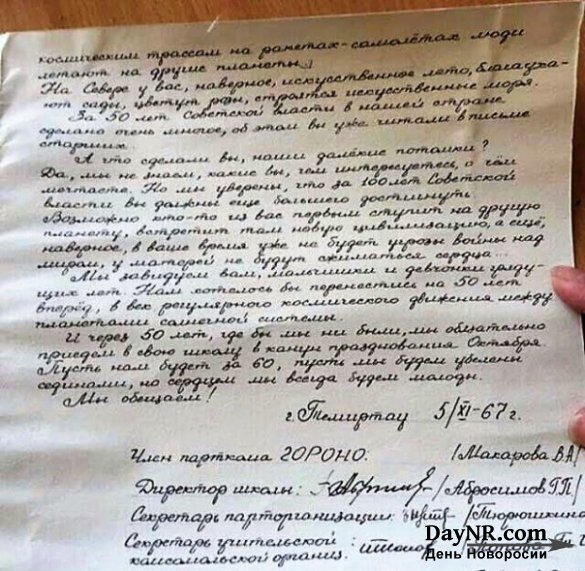 космическим трассам на ракетах-самолётах люди
летают на другие планеты.
На Севере у вас, наверное, искусственное лето, благауха-
ют сады, цветут розы, строятся искусственные моря.
За 50 лет Советской власти в нашей стране
сделано очень многое, об этом вы уже читали в письме
старших.
А что сделали вы, наши далёкие потомки?
Да, мы не знаем, какие вы, чем интересуетесь, о чём
мечтаете. Но мы уверены, что за 100 лет Советской
власти вы должны ещё большего достигнуть.
Возможно кто-то из вас первым ступит на другую
планету, встретит там новую цивилизацию, а ещё,
наверное, в ваше время уже не будет угрозы войны над
миром, у матерей не будут сжиматься сердца...
Мы завидуем вам, мальчишки и девчонки гряду-
щих лет. Нам хотелось бы перенестись на 50 лет
вперёд, в век регулярного космического движения между
планетами солнечной системы.
И через 50 лет, где бы мы ни были, мы обязательно
приедем в свою школу в канун празднования Октября.
Пусть нам будет за 60, пусть мы будем убелены
сединами, но сердцем мы всегда будем молоды.
Мы обещаем!
г. Темиртау 5/XI-67 г.
Член парткома ГОРОНО: /Макарова В.А/
Директор школы: /Абросимов Г.П/
Секретарь парторганизации: /Тюрюшкина
Секретарь учительской :
комсомольской организ.
DayNR.com
День Новоросии